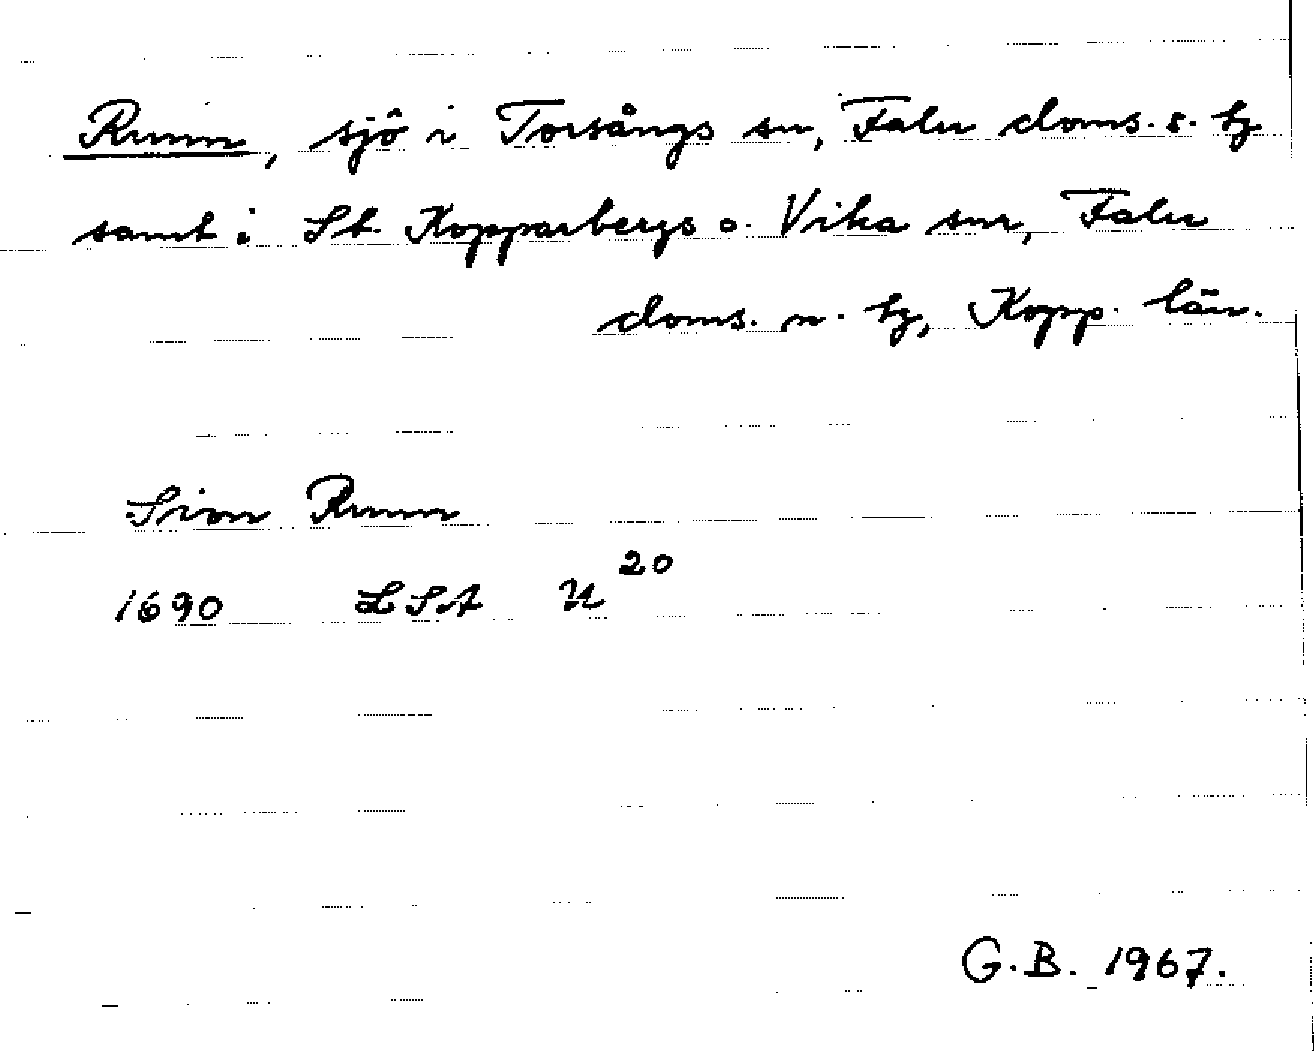 Runn, sjö i Torsångs sn, Falu doms. s. tg
samt i St. Kopparbergs o. Vika snr, Falu
doms. n. tg, Kopp. län.
Siön Runn
1690 LSA U 20
G.B. 1967.